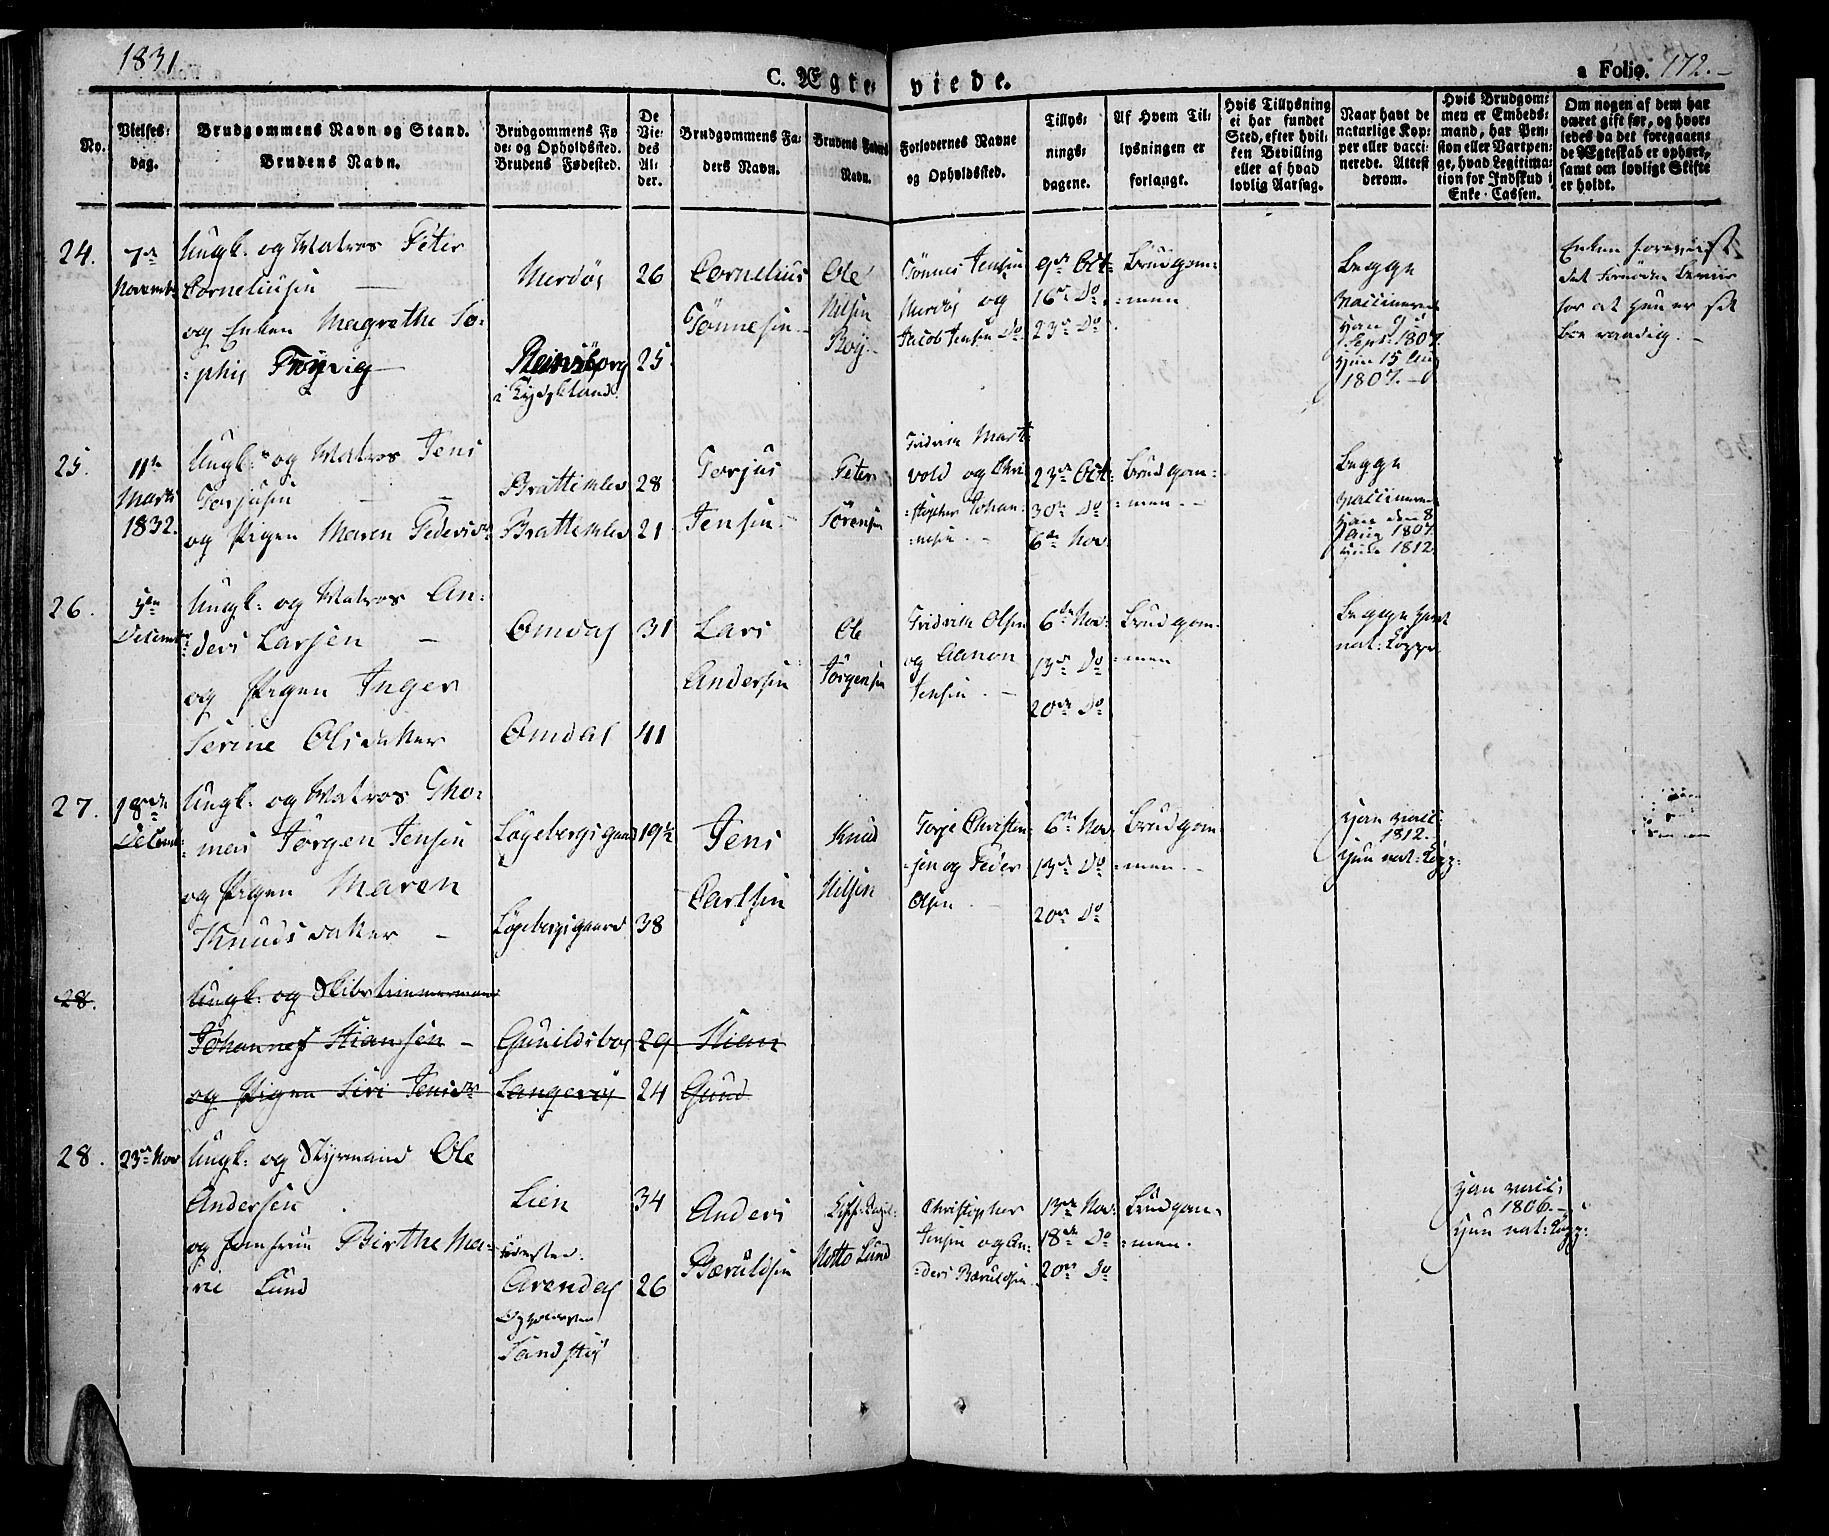 1831
C. Ægte-
viede.
a Folio. 172.
No.
Vielses-
dag.
Brudgommens Navn og Stand.
Brudens Navn.
Brudgommens Fø
de- og Opholdssted.
Brudens Fødested.
De
Vie-
des
Al-
der.
Brudgommens Fa-
ders Navn.
Brudens Faders
Navn.
Forlovernes Navne
og Opholdssted.
Tillys-
nings-
dagene.
Af Hvem Til-
lysningen er
forlangt.
Hvis Tillysning
ei har fundet
Sted, efter hvil-
ken Bevilling
eller af hvad
lovlig Aarsag.
Naar havt de
naturlige Kop-
per eller vacci-
nerede. Attest
derom.
Hvis Brudgom-
men er Embeds-
mand, har Pen-
sion eller Vartpen-
ge, hvad Legitima-
tion for Indskud i
Enke-Cassen.
Om nogen af dem har
været gift før, og hvor-
ledes da det foregaaen-
de Ægteskab er ophørt,
samt om lovligt Skifte
er holdt.
24.
7de
Novemb:
Ungk. og Matros Peter
Corneliusen
og Enken Magrethe So-
:phie
Merdøe
26
25
i Tydskland
Cornelius
Tönnesen
Ole
Nilsen
Boy
Tönnes Jensen
Merdöe og
Jacob Jensen Do
9de Oct.
16de Do
23de Do
Brudgom-
:men
Begge
vaccinerede
han 9
Sept. 1807.
hun 15 Aug
1807.
Enken foreviist
det fornödne Beviis
for at hun er
25.
11te
Marts
1832.
Ungk: og Matros Jens
Torjusen
og Pigen Maren Pedersd.
Bratteklev
Bratteklev
28
21
Torjus
Jensen
Peter
Sörensen
Fredrik Mart
vold og Chri
:stopher Johan
:nesen
23de Oct.
30te Do
6te Nov.
Brudgom-
:men
Begge
vaccinerede
han den 8
Aug 1807.
hun 1812.
26.
5te
Decemb:
Ungk: og Matros An-
ders Larsen
og Pigen Inger
Serine Olsdatter
Omdal
Omdal
31
41
Lars
Andersen
Ole
Jörgensen
Fredrik Olsen
og Aanon
Jensen
6te Nov:
13de Do
20de Do
Brudgom-
:men
Begge havt
nat: Kopper
27.
18de
Decemb:
Ungk: og Matros Tho-
:mas Jörgen Jensen
og Pigen Maren
Knudsdatter
Lögebergsgaard
Lögebergsgaard
19½
38
Jens
Carlsen
Knud
Nilsen
Torje Christen-
:sen og Peder
Olsen
6te Nov.
13de Do
20de Do
Brudgom-
:men
han vacc:
1812.
hun nat: Kopp:
28.
Ungk: og Skibstimmermand
Johannes Stiansen
og Pigen Siri Jensdr.
Gunildsboe
Langeröe
29
24
Stian
Gund
28.
23de Nov
Ungk: og Styrmand Ole
Andersen
og Jomfrue Birthe Ma-
:rie Lund
Lien
Arendal
34
26
Anders
Bæruldsen
Notto Lund
Christopher
Jensen og An-
:ders Bæruldsen
13de Nov:
18de Do
20de Do
Brudgom-
:men.
han vacc:
1806.
hun nat: Kopp: